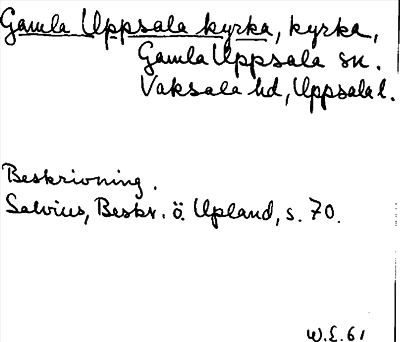 Gamla Uppsala kyrka, kyrka,
Gamla Uppsala sn.
Vaksala hd, Uppsala l.
Beskrivning.
Salvius, Beskr. ö. Upland, s. 70.
W.E. 61